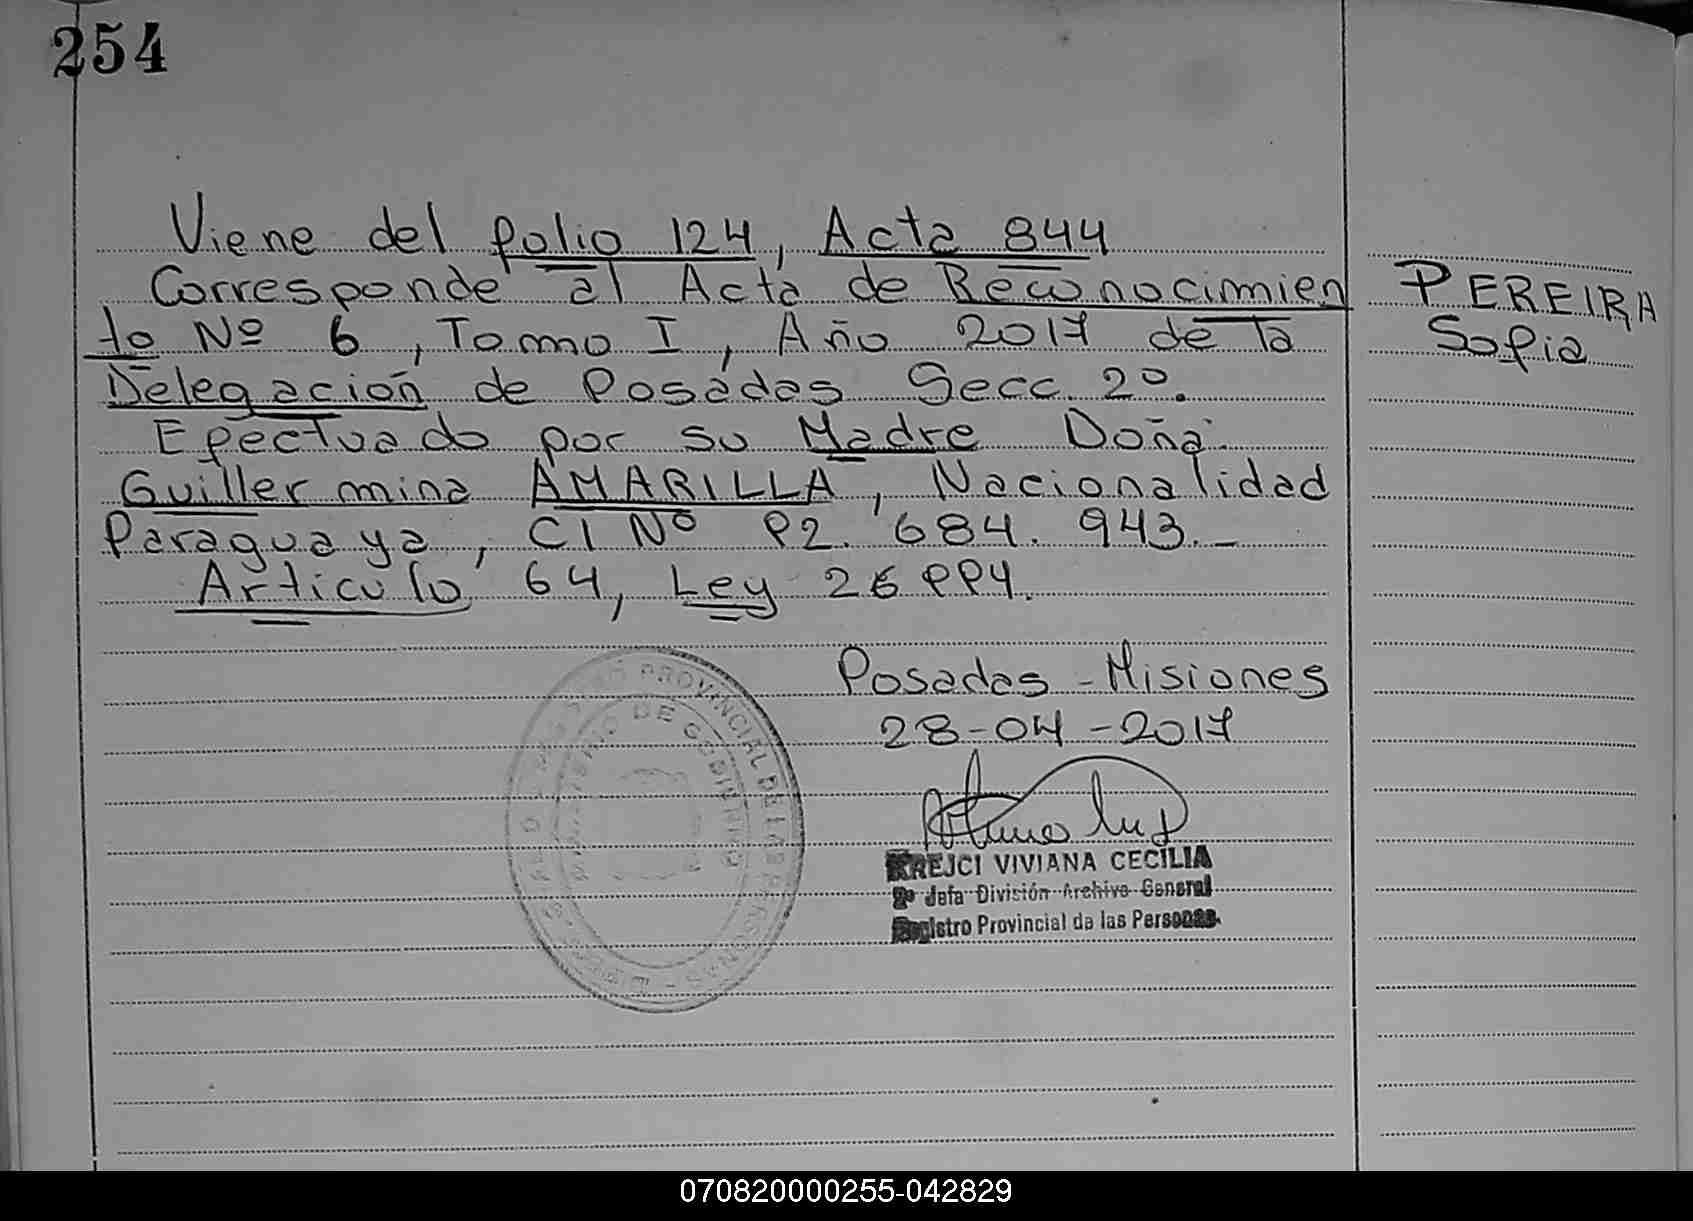 254
Viene del folio 124, Acta 844
Corresponde al Acta de Reconocimien
to Nº 6, Tomo I, Año 2017 de la
Delegación de Posadas Secc. 2º.
Efectuado por su Madre Doña
Guillermina AMARILLA, Nacionalidad
Paraguaya, CI Nº P2. 684. 943.-
Articulo 64, Ley 26 994.
PEREIRA
Sofia
Posadas - Misiones
28-04-2017
KREJCI VIVIANA CECILIA
2º Jefa División Archivo General
Registro Provincial de las Personas
REGISTRO PROVINCIAL DE LAS PERSONAS
MINISTERIO DE GOBIERNO
070820000255-042829